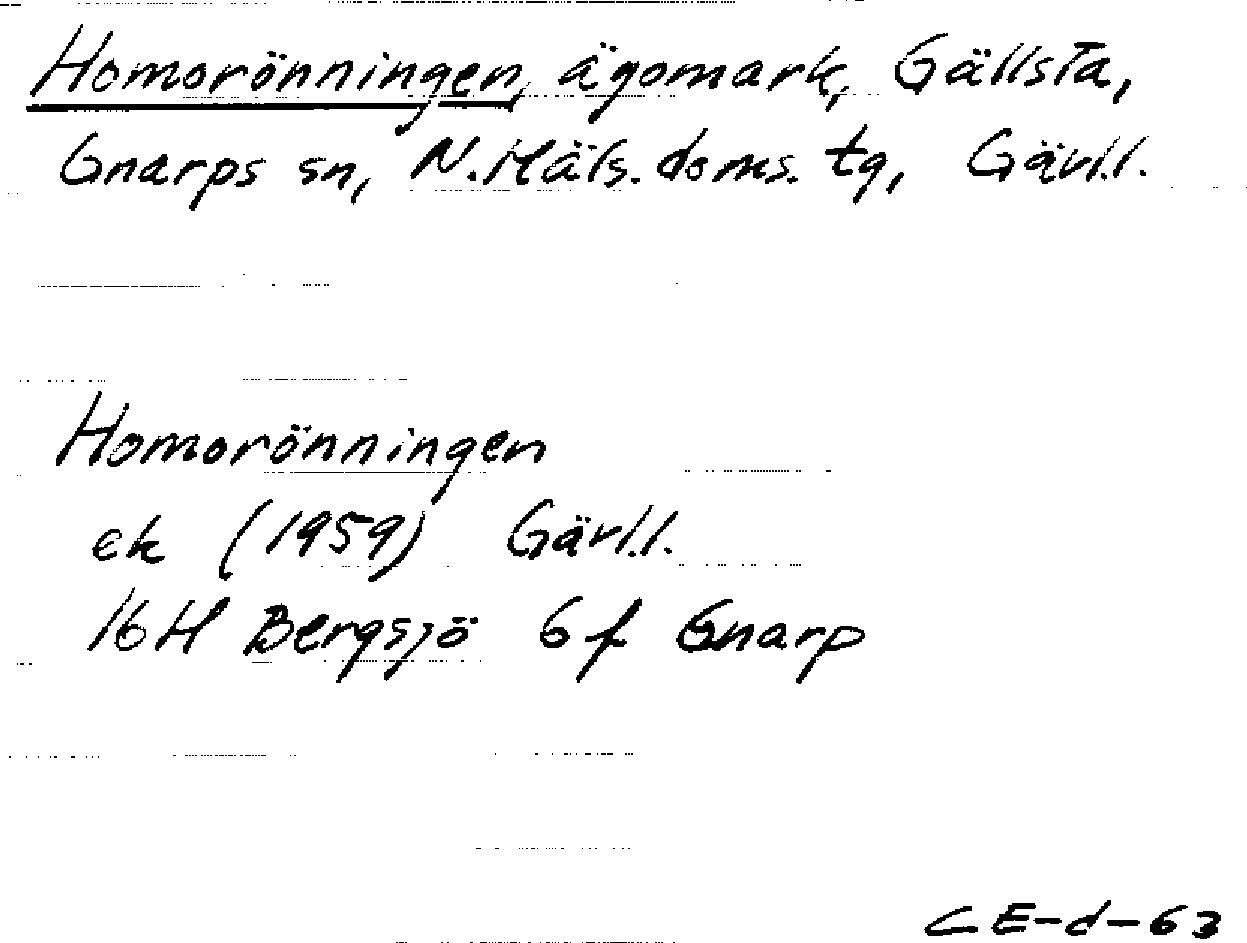 Homorönningen, ägomark, Gällsta,
Gnarps sn, N.Häls.doms.tg, Gävl.l.
Homorönningen
ek (1959) Gävl.l.
16H Bergsjö 6f Gnarp
CE-d-63